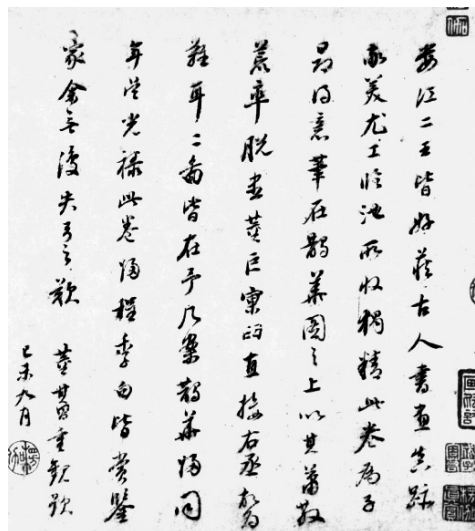 婁江二王皆好藏古人書畫真跡
敬美尤工臨池所收稍精此卷為子
昂得意筆在鵲華圖之上以其蕭散
荒率脫盡董巨窠臼直接右丞故為
難耳二圖皆在予几案鵲華歸同
年吳光祿此卷歸程季白皆賞鑒
家余無復失弓之歎 董其昌重觀題
己未九月